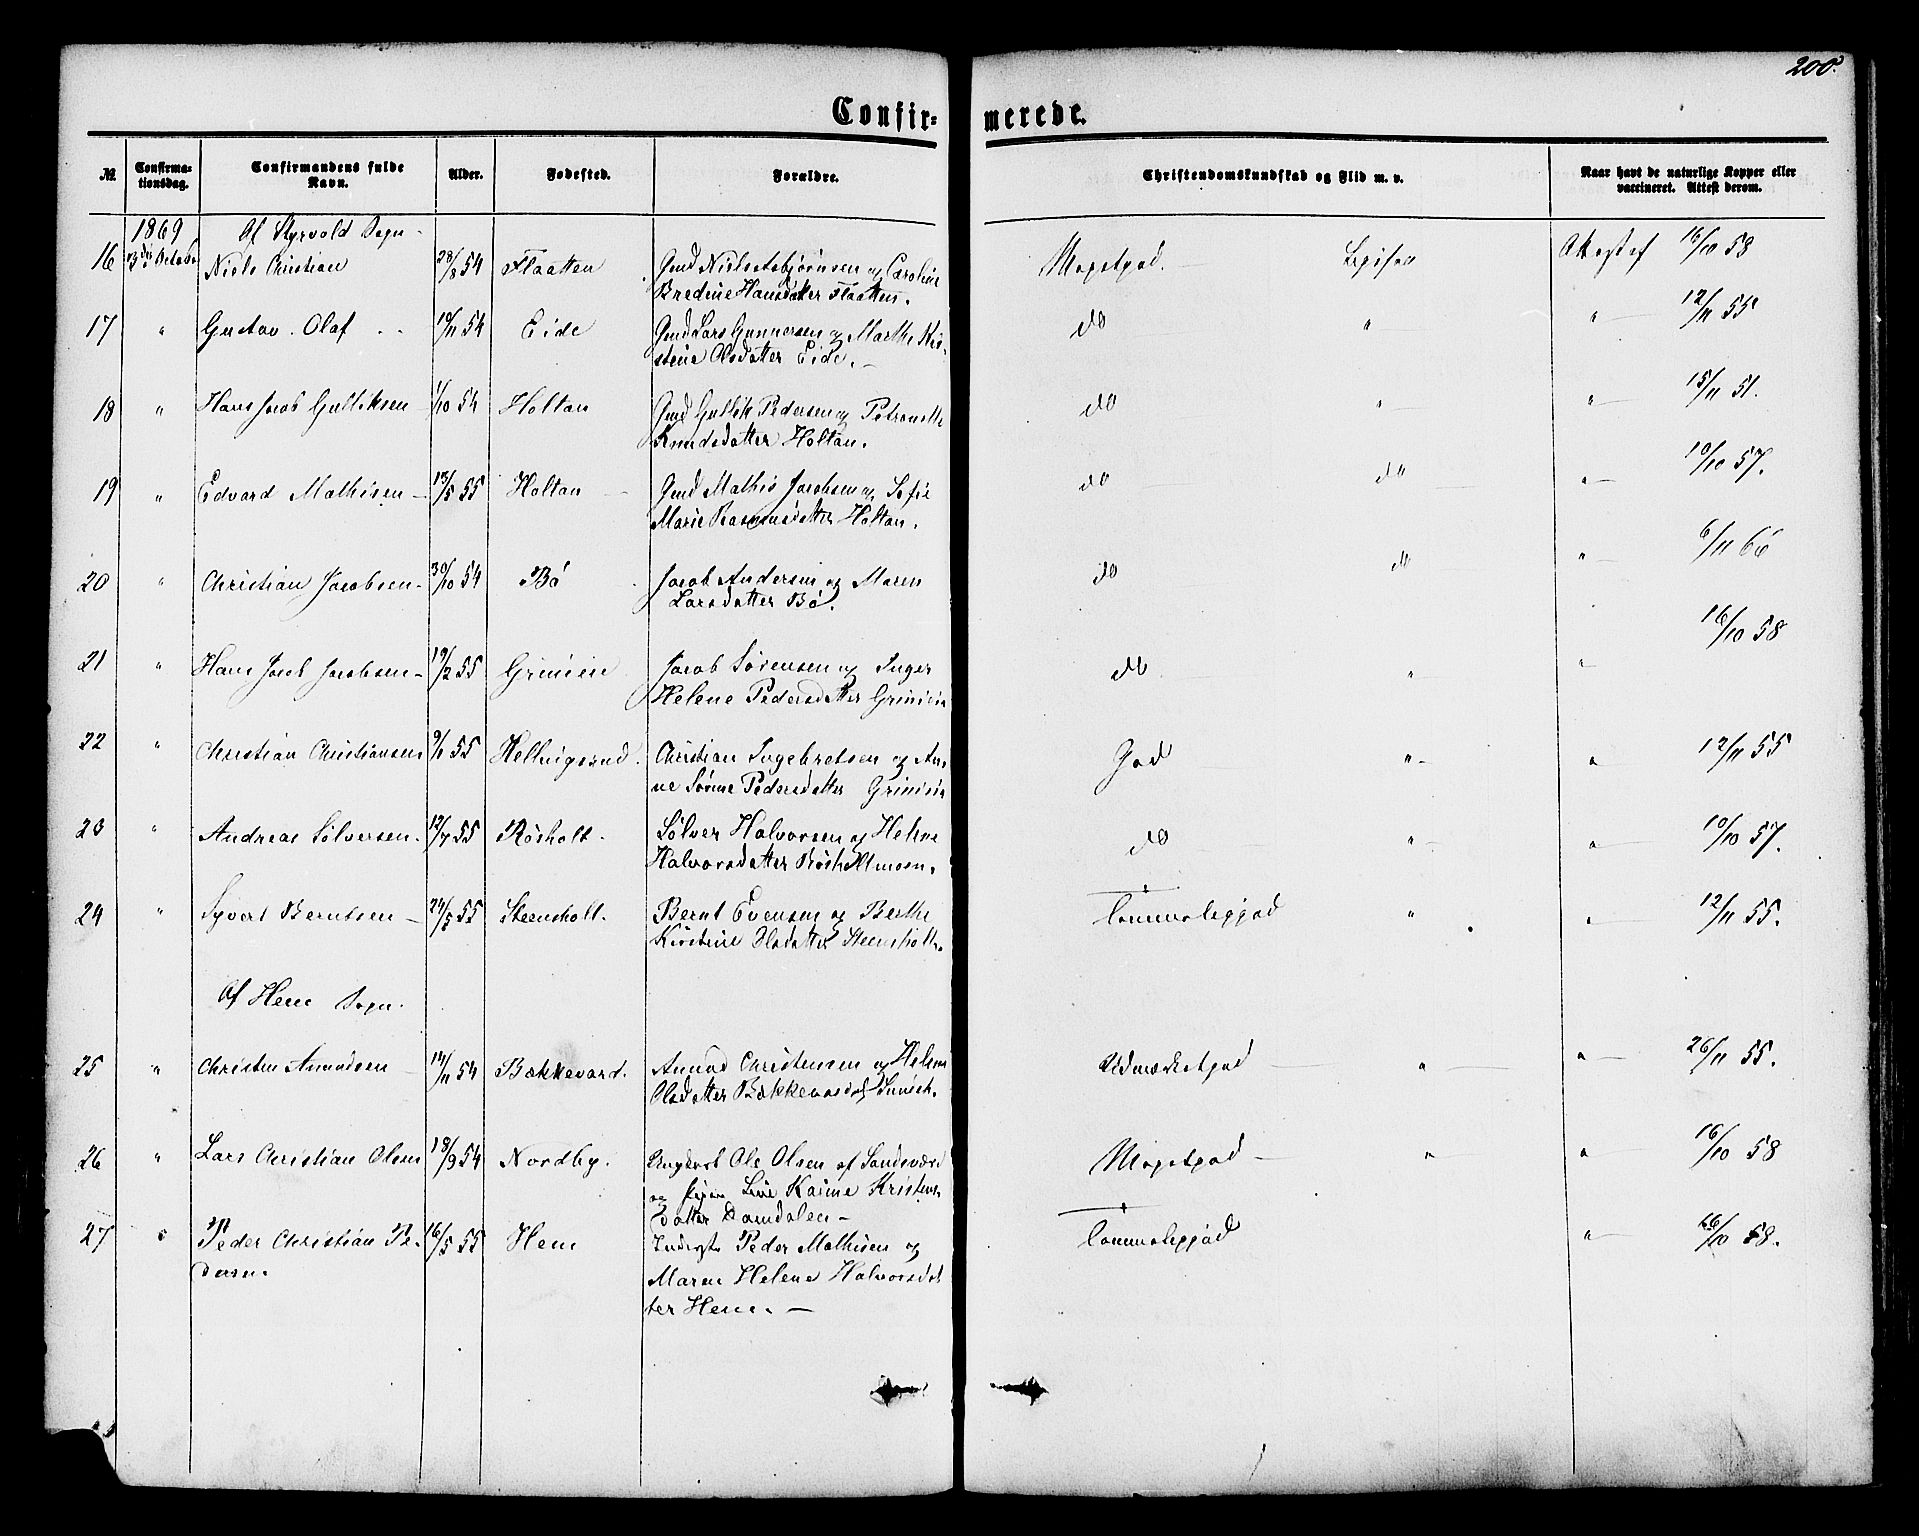 200.
Confir= merede.
№ Confirma- tionsdag. Confirmandens fulde Navn. Alder. Fødested. Forældre. Christendomskundskab og Flid m. v. Naar havt de naturlige Kopper eller vaccineret. Attest derom.
1869 Af Styrvold Sogn
16 3die Octobr Niels Christian 28/8 54 Flaatten Gmd Niels Asbjørnsen og Caroline Meget god. Ligesaa Attest af 16/10 58
Bredine Hansdatter Flaatten.
17 " Gustav Olaf 19/11 54 Eide Gmd Lars Gunnersen og Marthe Kir- do " " 12/11 55
stine Olsdatter Eide. —
18 " Hans Jacob Gulliksen 1/10 54 Holtan Gmd Gullik Pedersen og Petronelle do " " 15/11 51.
Knudsdatter Holtan.
19 " Edvard Mathisen — 13/5 55 Holtan Gmd Mathis Jacobsen og Sofie do do " 10/10 57.
Marie Rasmusdatter Holtan.
20 " Christian Jacobsen 30/10 54 Bö Jacob Andersen og Maren do do " 6/11 66
Larsdatter Bö.
21 " Hans Jacob Jacobsen 19/2 55 Grinien Jacob Sörensen og Inger do " " 16/10 58
Helene Pedersdatter Grinien
22 " Christian Christiansen 9/1 55 Hellingsrud. Christian Ingebretsen og An- God " " 12/11 55
ne Sörine Pedersdatter Grinien
23 " Andreas Sölversen 12/7 55 Rösholt. Sölver Halvorsen og Helene do " " 10/10 57.
Halvorsdatter Rösholtmoen.
24 " Syvert Berntsen — 24/5 55 Steensholt. Bernt Evensen og Berthe Temmelig god " " 12/11 55.
Kirstine Olsdatter Steensholt.
Af Hem Sogn.
25 " Christen Amundsen 14/11 54 Bækkevard. Amund Christensen og Helene Udmærket god " " 26/11 55.
Olsdatter Bækkevard
26 " Lars Christian Olsen 18/9 54 Nordby. Ungkarl Ole Olsen af Sandsværd Meget god " " 16/10 58
og Pigen Line Karine Kristens-
datter Damdalen —
27 " Peder Christian Pe- 16/5 55 Hem Inderst Peder Mathisen og Temmelig god " 16/10 58.
dersen. Maren Helene Halvorsdat
ter Hem. —